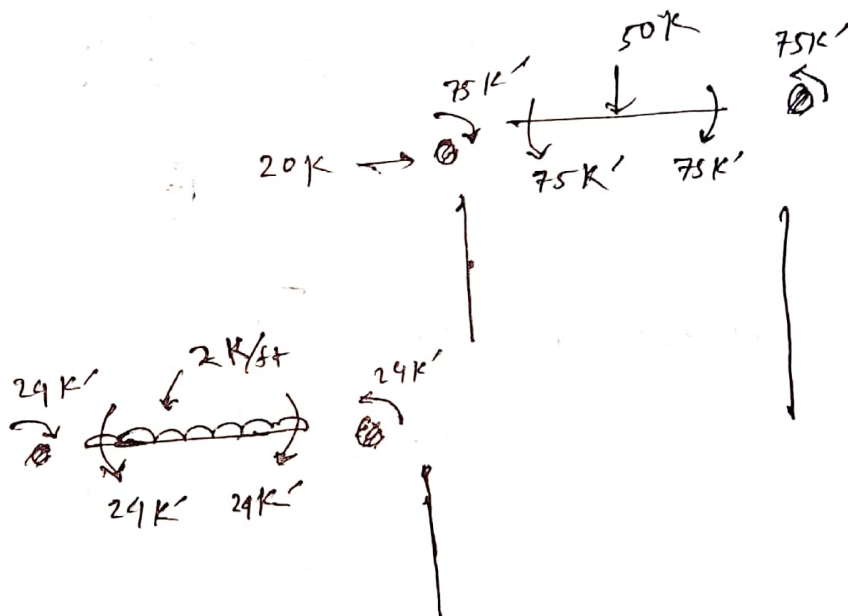 50K
75K′
75K′
20K
75K′
75K′
2K/ft
24K′
24K′
24K′
24K′